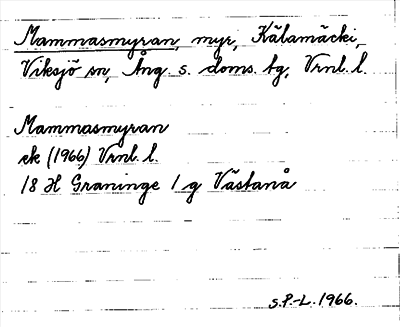 Mammasmyran, myr, Kälamäcki,
Viksjö sn, Ång. s. doms. tg, Vrnl. l.
Mammasmyran
ek (1966) Vrnl. l.
18 H Graninge 1 g Västanå
S.P.-L. 1966.